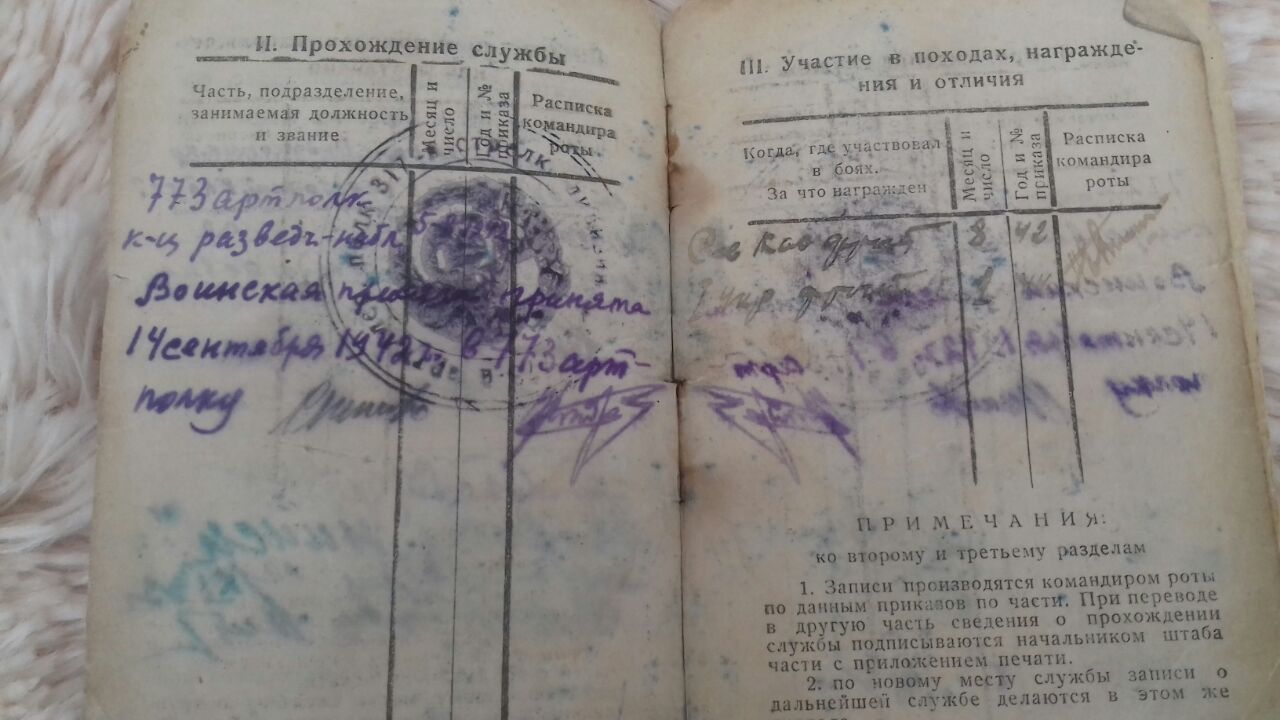 II. Прохождение службы
Часть, подразделение,
занимаемая должность
и звание
Месяц и
число
Год и №
приказа
Расписка
командира
роты
773 артполк
к-ц разведч-набл
Воинская принята
14 сентября 1942 г. в 773 арт-
полку
III. Участие в походах, награжде-
ния и отличия
Когда, где участвовал
в боях.
За что награжден
Месяц и
число
Год и №
приказа
Расписка
командира
роты
8 42
1 укр
ПРИМЕЧАНИЯ:
ко второму и третьему разделам
1. Записи производятся командиром роты
по данным приказов по части. При переводе
в другую часть сведения о прохождении
службы подписываются начальником штаба
части с приложением печати.
2. по новому месту службы записи о
дальнейшей службе делаются в этом же